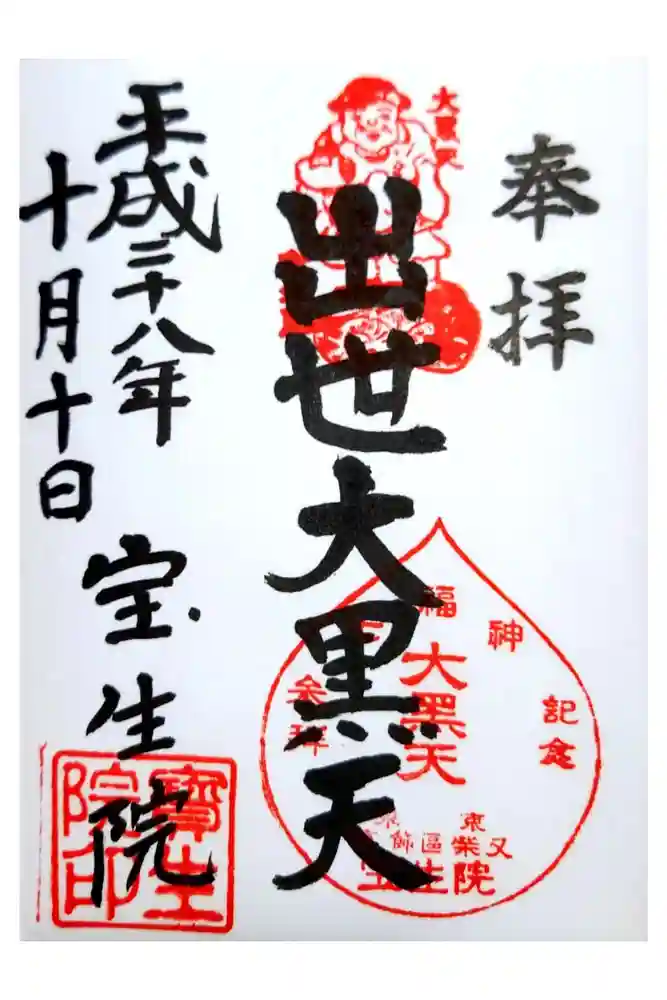 奉拝
大黒天
出世大黒天
福神
参拝
記念
大黒天
東
葛飾區柴又
宝生院
平成二十八年
十月十日
宝生院
寶生
院印